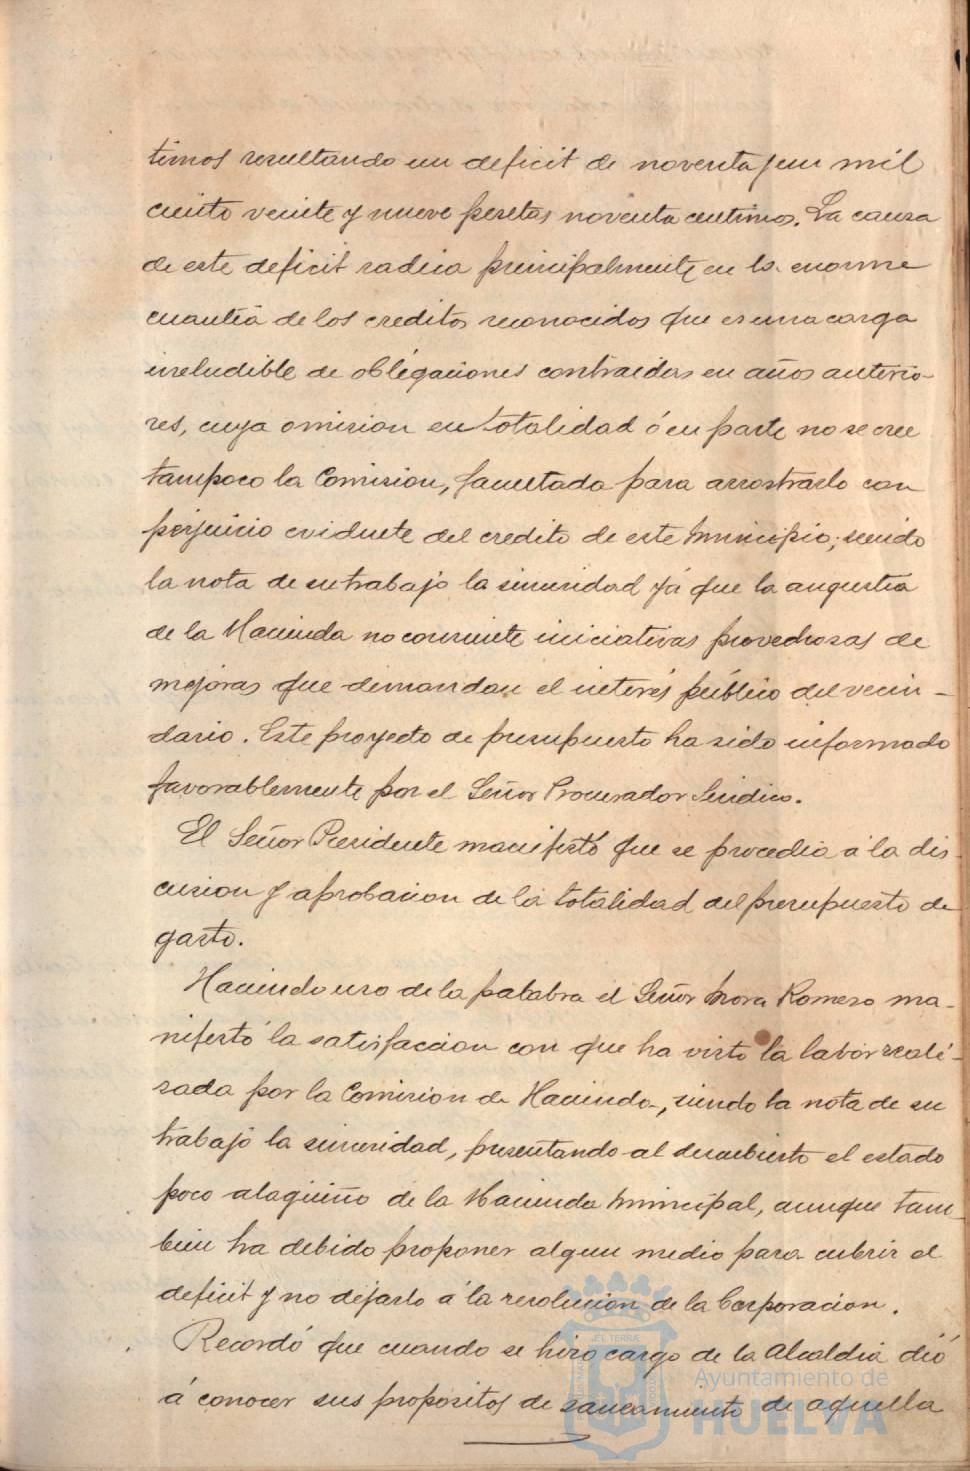 timos resultando un deficit de noventa y un mil
ciento veinte y nueve pesetas noventa centimos. La causa
de este deficit radica principalmente en la enorme
cuantia de los creditos reconocidos que es una carga
ineludible de obligaciones contraidas en años anterio-
res, cuya omision en totalidad ó en parte no se cree
tampoco la Comision, facultada para arrostrarlo con
perjuicio evidente del credito de este Municipio; siendo
la nota de su trabajo la sinceridad ya que la angustia
de la Hacienda no consiente iniciativas provechosas de
mejoras que demandan el interés público del vecin-
dario. Este proyecto de presupuesto ha sido informado
favorablemente por el Señor Procurador Sindico.
El Señor Presidente manifestó que se procedia á la dis-
cusion y aprobacion de la totalidad del presupuesto de
gasto.
Haciendo uso de la palabra el Señor Mora Romero ma-
nifestó la satisfaccion con que ha visto la labor reali-
zada por la Comision de Hacienda, siendo la nota de su
trabajo la sinceridad, presentando al descubierto el estado
poco alagüeño de la Hacienda Municipal, aunque tam-
bien ha debido proponer algun medio para cubrir el
deficit y no dejarlo á la resolucion de la Corporacion.
Recordó que cuando se hizo cargo de la Alcaldia dió
á conocer sus propositos de saneamiento de aquella
Ayuntamiento de
HUELVA